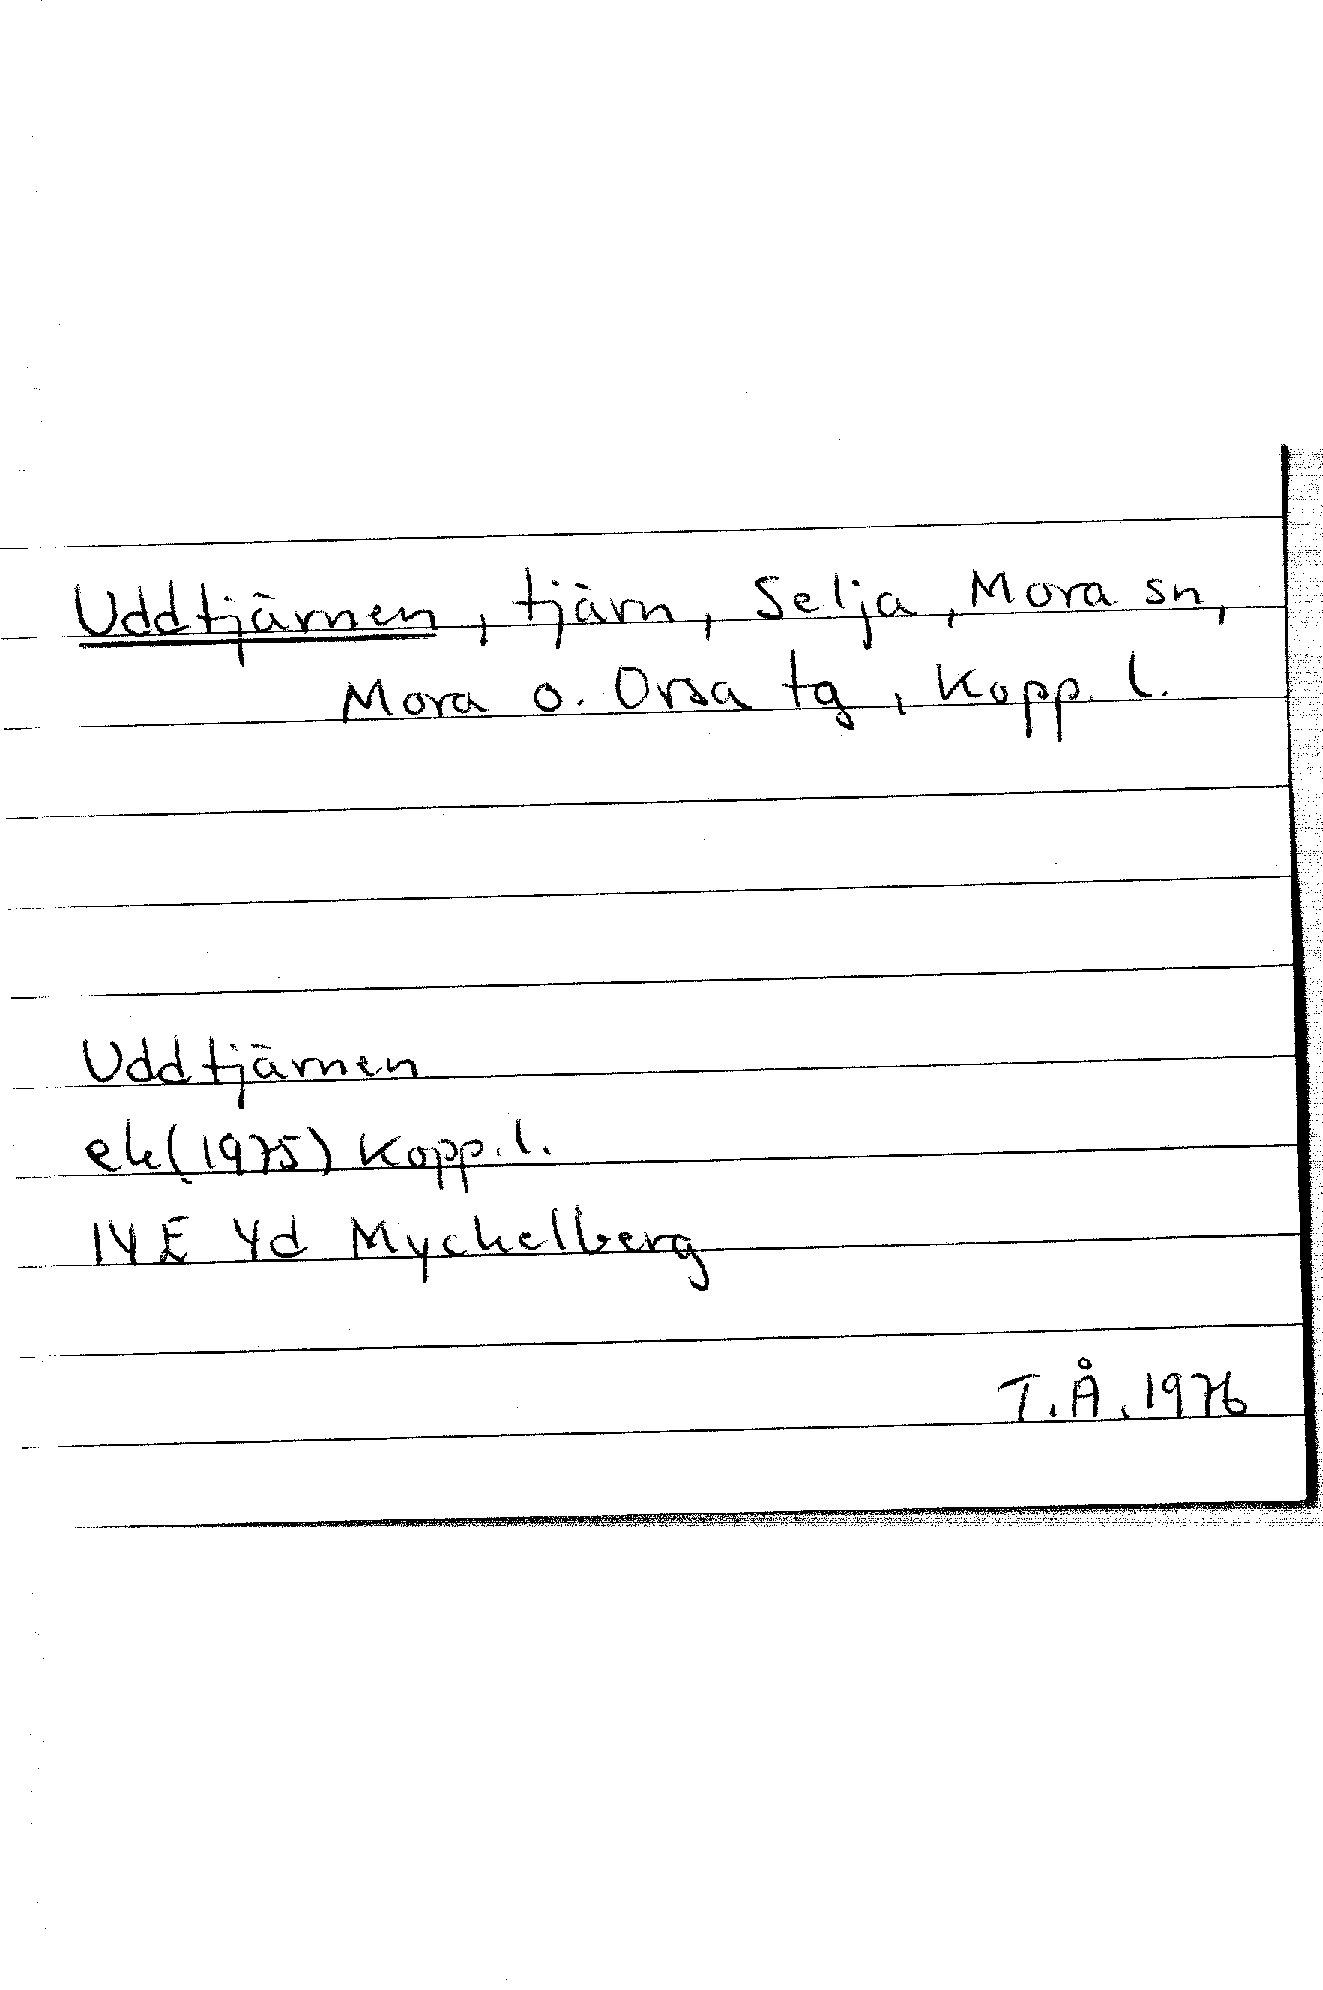 Uddtjärnen, tjärn, Selja, Mora sn,
Mora o. Orsa tg, Kopp. l.
Uddtjärnen
ek(1975) Kopp. l.
14E 4d Myckelberg
T.Å. 1976